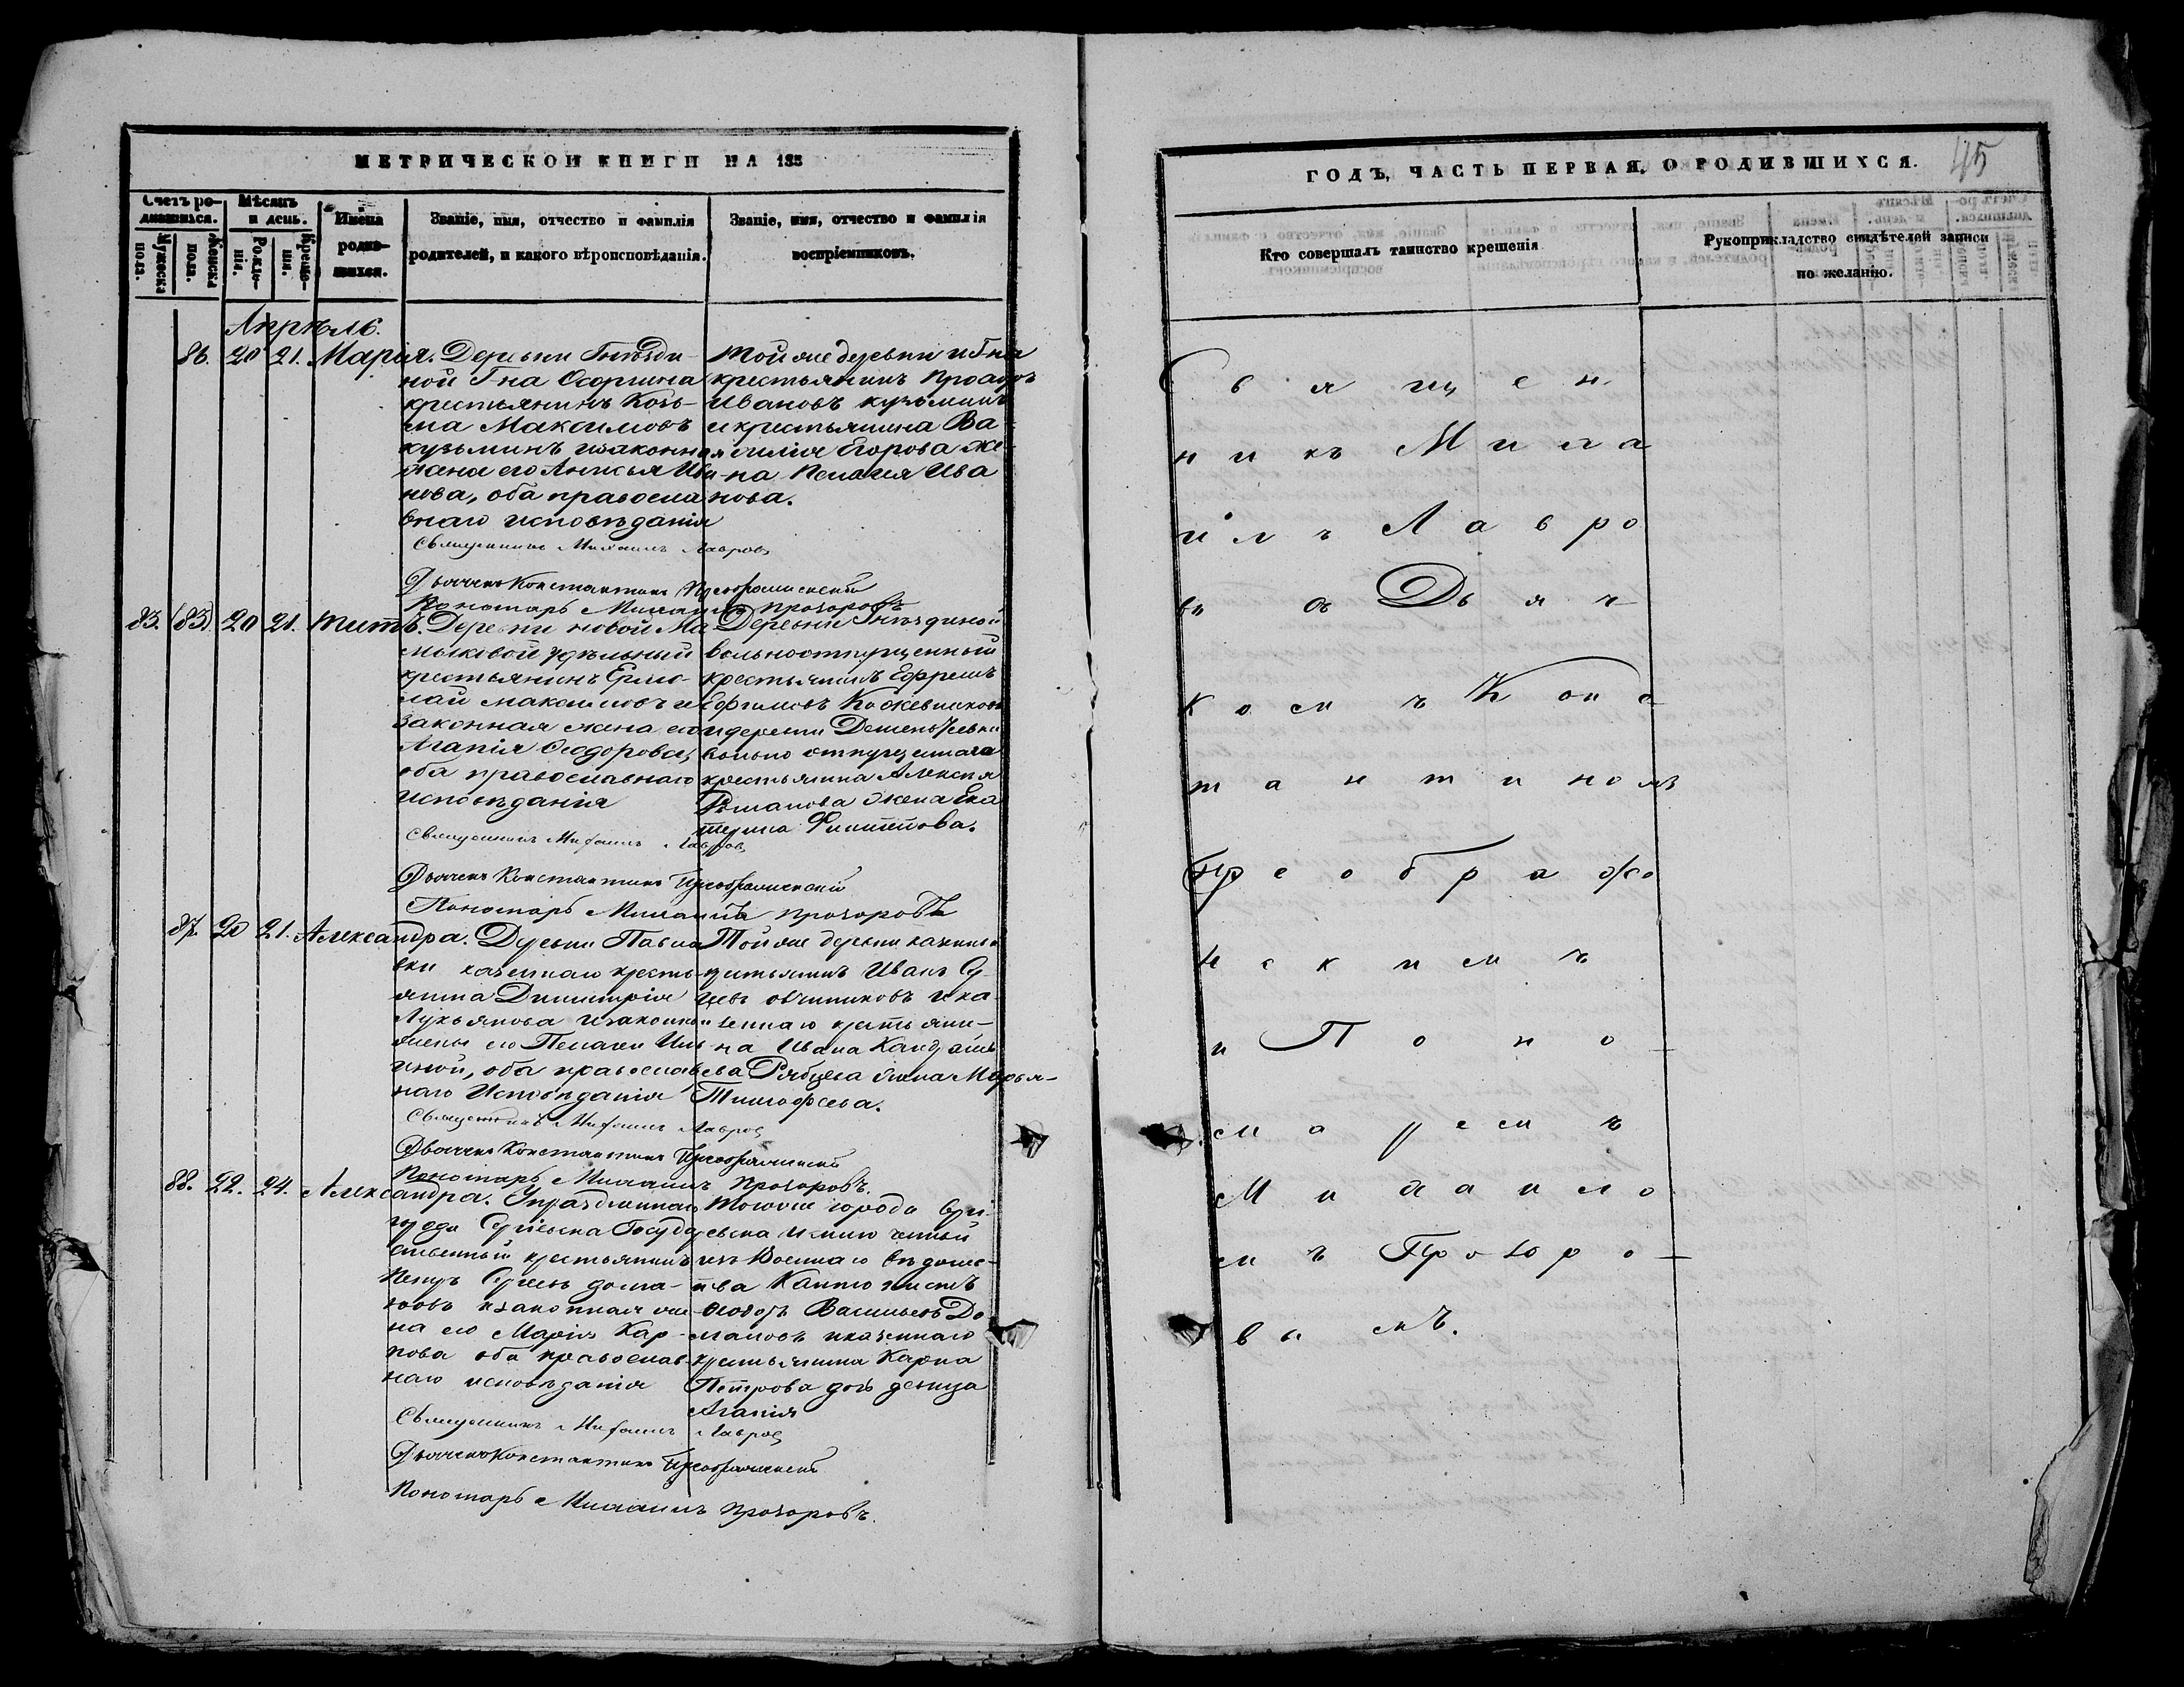 МЕТРИЧЕСКОЙ КНИГИ НА 185
Счетъ родившихся.
Мѣсяцъ и день.
Имена родившихся.
Званіе, имя, отчество и фамилія родителей, и какого вѣроисповѣданія.
Званіе, имя, отчество и фамилія воспріемниковъ.
Мужеска пола.
Женска пола.
Рожденія.
Крещенія.
Апрѣль.
86. 20 21. Марія.
Деревни Гнѣзди-
ной Г-на Осоргина
крестьянинъ Козь-
ма Максимовъ
кузьминъ изаконная
жена его Анисья Ива
нова, оба правосла
внаго исповѣданія
Тойже деревни
крестьянинъ
Ивановъ кузьминъ
и крестьянина Ва
силія Егорова же-
на Пелагея Ива
нова.
Священникъ Михаилъ Лавровъ
Дьячекъ Константинъ Преображенскій
Пономарь Михаилъ Прозоровъ
83. (83) 20 21. Титъ.
Деревни новой Ма
мыковой удѣльный
крестьянинъ Ермо-
лай максимовъ и
законная жена его
Агапія Ѳеодорова,
оба православнаго
исповѣданія
Деревни Гнѣздиной
вольноотпущенный
крестьянинъ Ефремъ
Ефимовъ Кожевниковъ
идеревни
вольно отпущеннаго
крестьянина Алексѣя
Романова жена Ека
терина Филиппова.
Священникъ Михаилъ Лавровъ
Дьячекъ Константинъ Преображенскій
Пономарь Михаилъ Прозоровъ
87. 20 21. Александра.
Деревни Павло
вки казеннаго кресть-
янина Димитрія
Лукьянова изаконной
жены его Пелагеи
иной, оба православ
наго Исповѣданія
Тойже деревни казенный
крестьянинъ Иванъ
овчинниковъ и ка-
зеннаго крестьяни-
на Ивана
Рябцева жена Марья
Тимофеева.
Священникъ Михаилъ Лавровъ
Дьячекъ Константинъ Преображенскій
Пономарь Михаилъ Прозоровъ.
88. 22. 24. Александра.
Упраздненнаго
города Сергіевска Государ
ственный крестьянинъ
Петръ Сергеевъ дома-
новъ изаконная же-
на его Марія Кар-
пова оба православ-
наго исповѣданія
Тогоже города Сергі-
евска
изъ Военнаго вѣдомс-
тва Кантонистъ
Ѳедоръ Васильевъ До-
мановъ иказеннаго
крестьянина Карпа
Петрова дочь девица
Агапія
Священникъ Михаилъ Лавровъ
Дьячекъ Константинъ Преображенскій
Пономарь Михаилъ Прозоровъ.
ГОДЪ, ЧАСТЬ ПЕРВАЯ, О РОДИВШИХСЯ.
45
Кто совершалъ таинство крещенія
Рукоприкладство свидѣтелей записи по желанію.
Священ
никъ Миха
илъ Лавро
въ съ Дьяч
комъ Конс
тантиномъ
Преображе
нскимъ
и Поно
маремъ
Михаило
мъ Прозоро
вымъ.